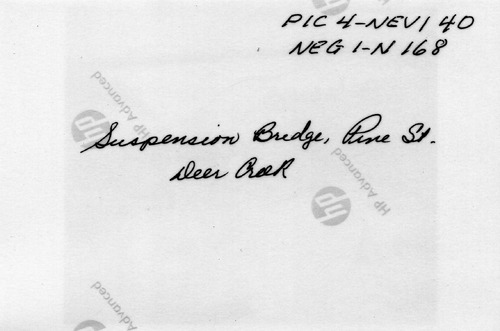 PIC 4-NEV1 40
NEG 1-N 168
HP Advanced
Suspension Bridge, Pine St.
Deer Creek
HP Advanced
HP Advanced